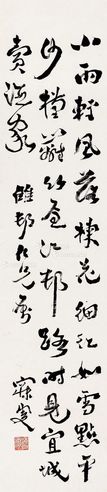 小雨輕風落楝花細紅如雪點平
沙槿籬竹屋江邨路時見宜城
賣酒家
邨仁兄屬
寐叟